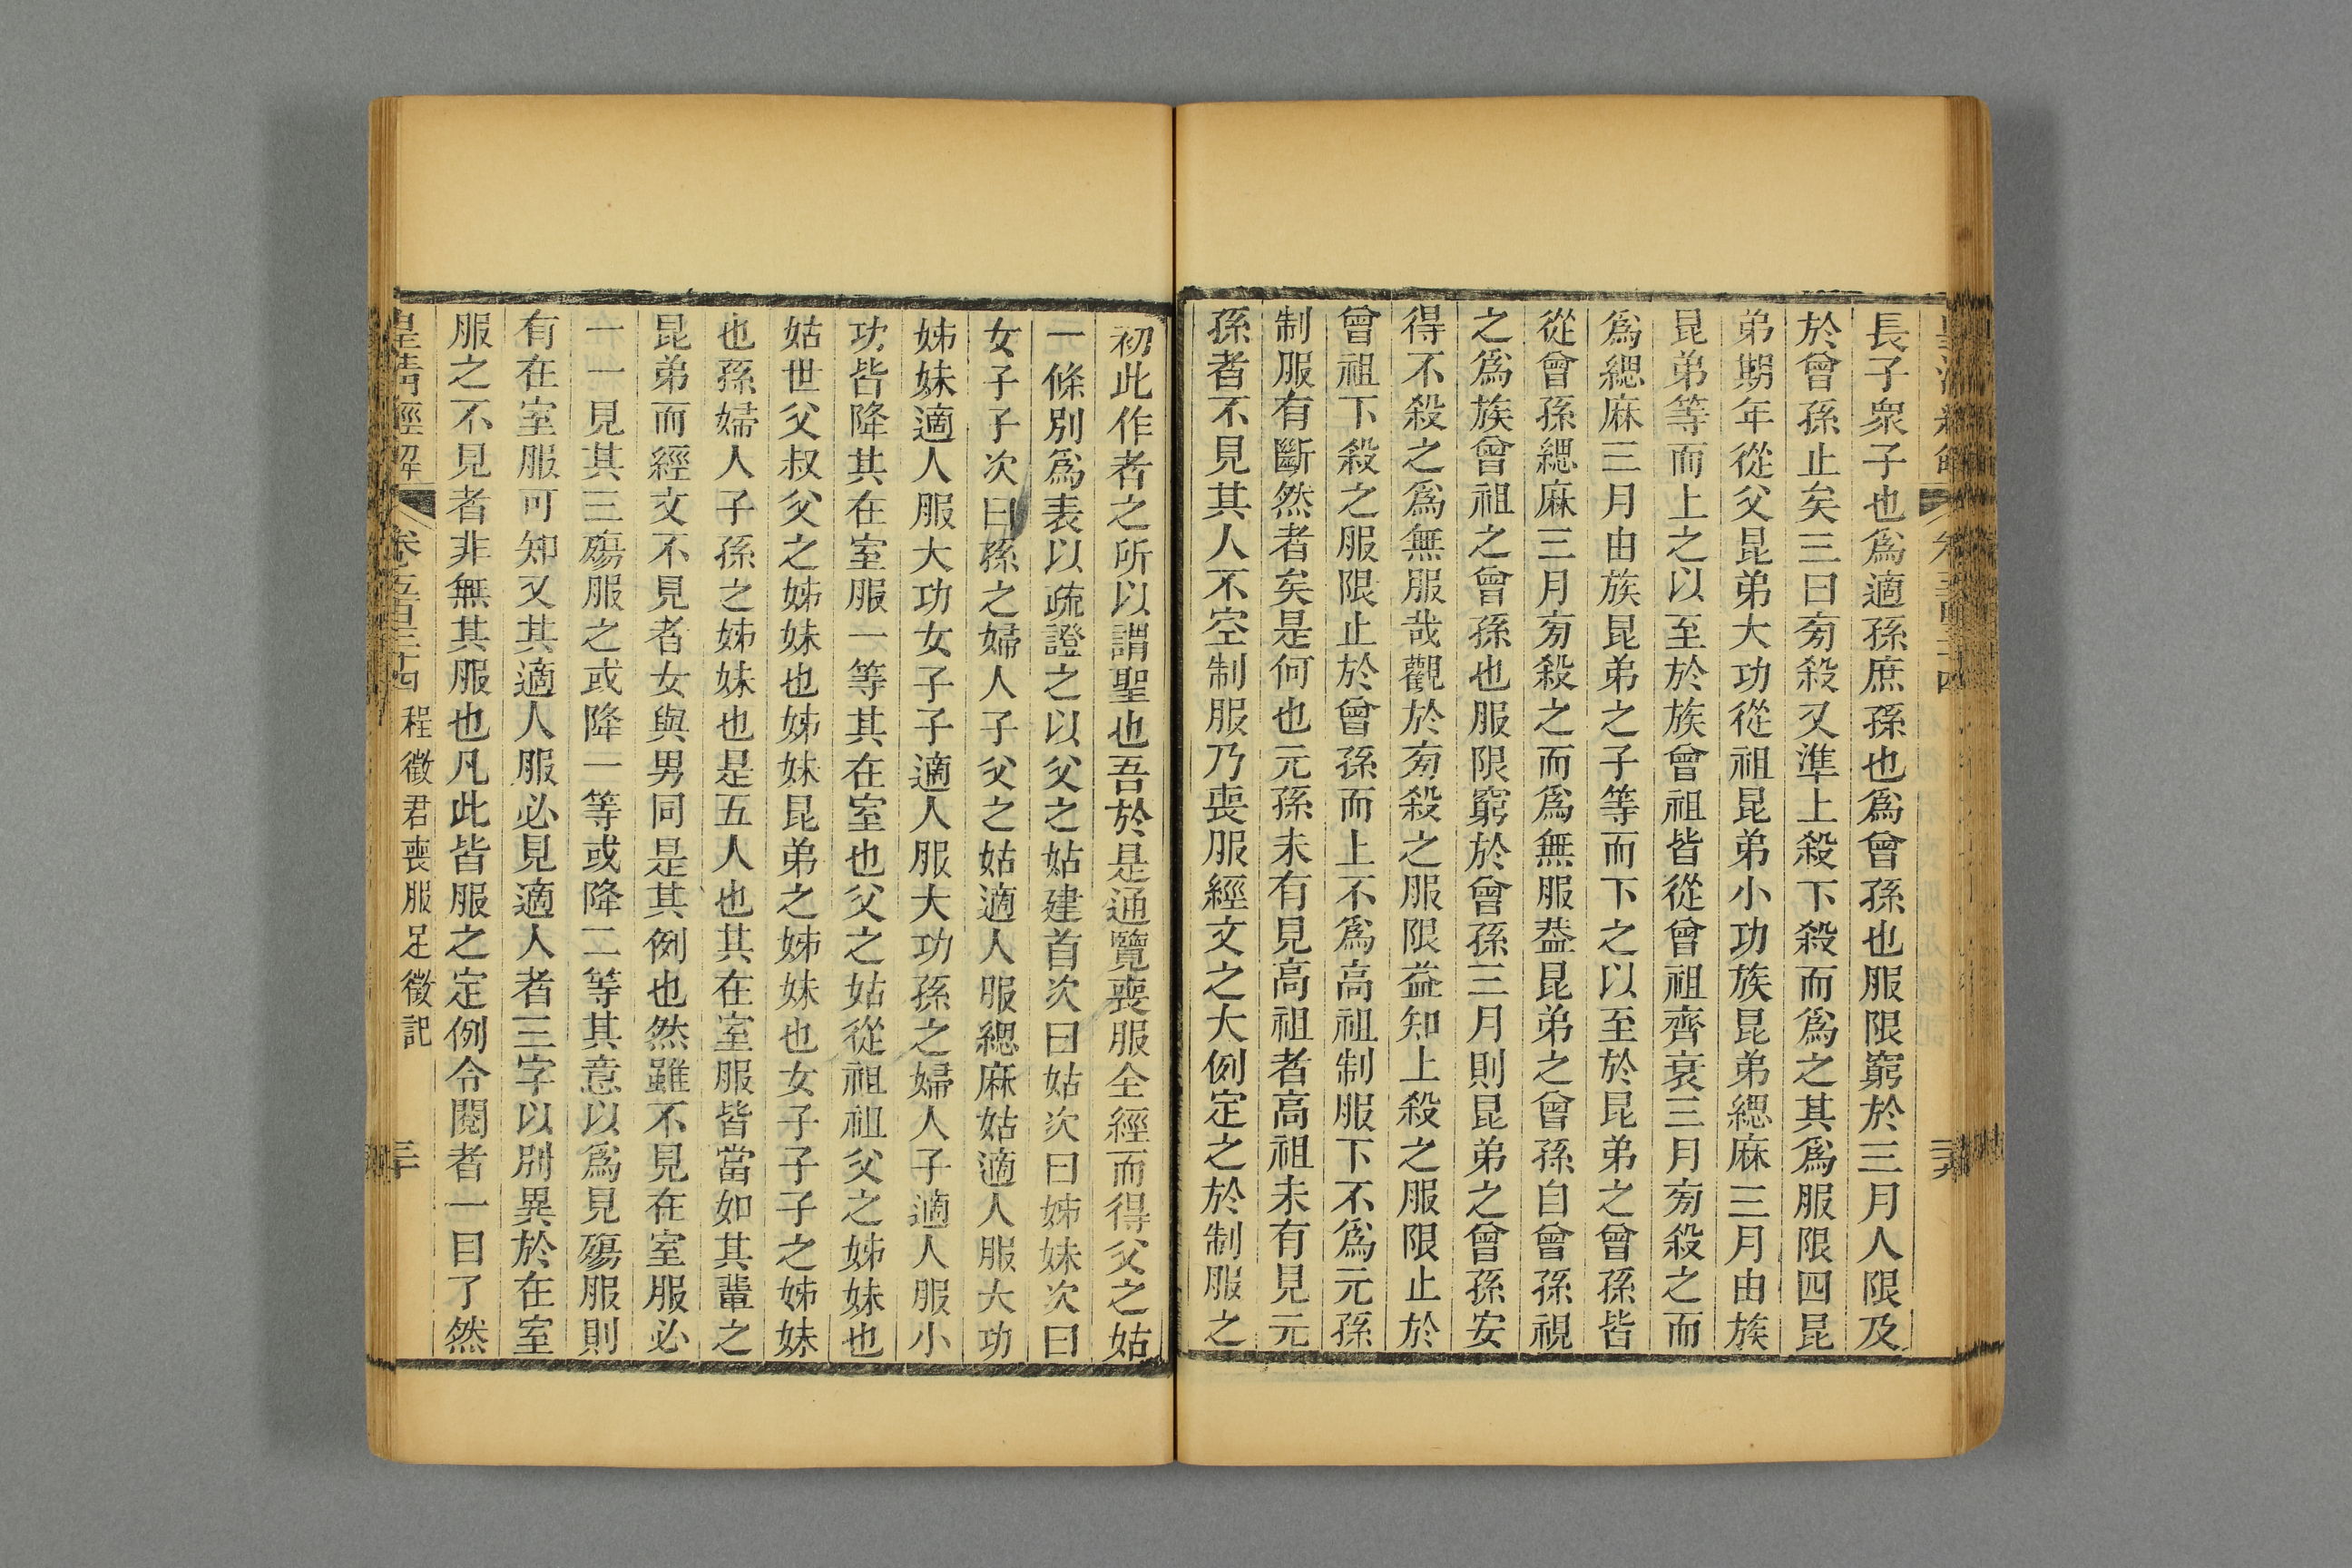 長子衆子也爲適孫庶孫也爲曾孫也服限窮於三月人限及
於曾孫止矣三曰旁殺又準上殺下殺而爲之其爲服限四昆
弟期年從父昆弟大功從祖昆弟小功族昆弟緦麻三月由族
昆弟等而上之以至於族曾祖皆從曾祖齊衰三月旁殺之而
爲緦麻三月由族昆弟之子等而下之以至於昆弟之曾孫皆
從曾孫緦麻三月旁殺之而爲無服葢昆弟之曾孫自曾孫視
之爲族曾祖之曾孫也服限窮於曾孫三月則昆弟之曾孫安
得不殺之爲無服哉觀於旁殺之服限益知上殺之服限止於
曾祖下殺之服限止於曾孫而上不爲高祖制服下不爲元孫
制服有斷然者矣是何也元孫未有見高祖者高祖未有見元
孫者不見其人不空制服乃喪服經文之大例定之於制服之
初此作者之所以謂聖也吾於是通覽喪服全經而得父之姑
一條別爲表以疏證之以父之姑建首次曰姑次曰姊妹次曰
女子子次曰孫之婦人子父之姑適人服緦麻姑適人服大功
姊妹適人服大功女子子適人服大功孫之婦人子適人服小
功皆降其在室服一等其在室也父之姑從祖祖父之姊妹也
姑世父叔父之姊妹也姊妹昆弟之姊妹也女子子之姊妹
也孫婦人子孫之姊妹也是五人也其在室服皆當如其輩之
昆弟而經文不見者女與男同是其例也然雖不見在室服必
一一見其三殤服之或降一等或降二等其意以爲見殤服則
有在室服可知又其適人服必見適人者三字以別異於在室
服之不見者非無其服也凡此皆服之定例令閱者一目了然
皇清經解 卷五百三十四 程徵君喪服足徵記 三十